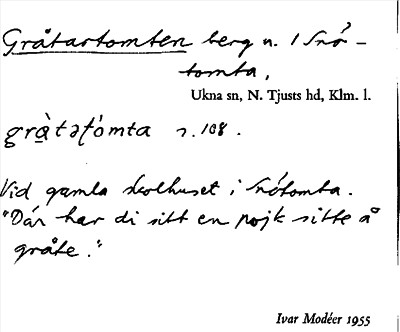 Gråtartomten berg n. i Snö-
tomta,
Ukna sn, N. Tjusts hd, Klm. l.
s. 108.
Vid gamla skolhuset i Snötomta.
"Där har di sitt en pojk sitte å
gråte."
Ivar Modéer 1955